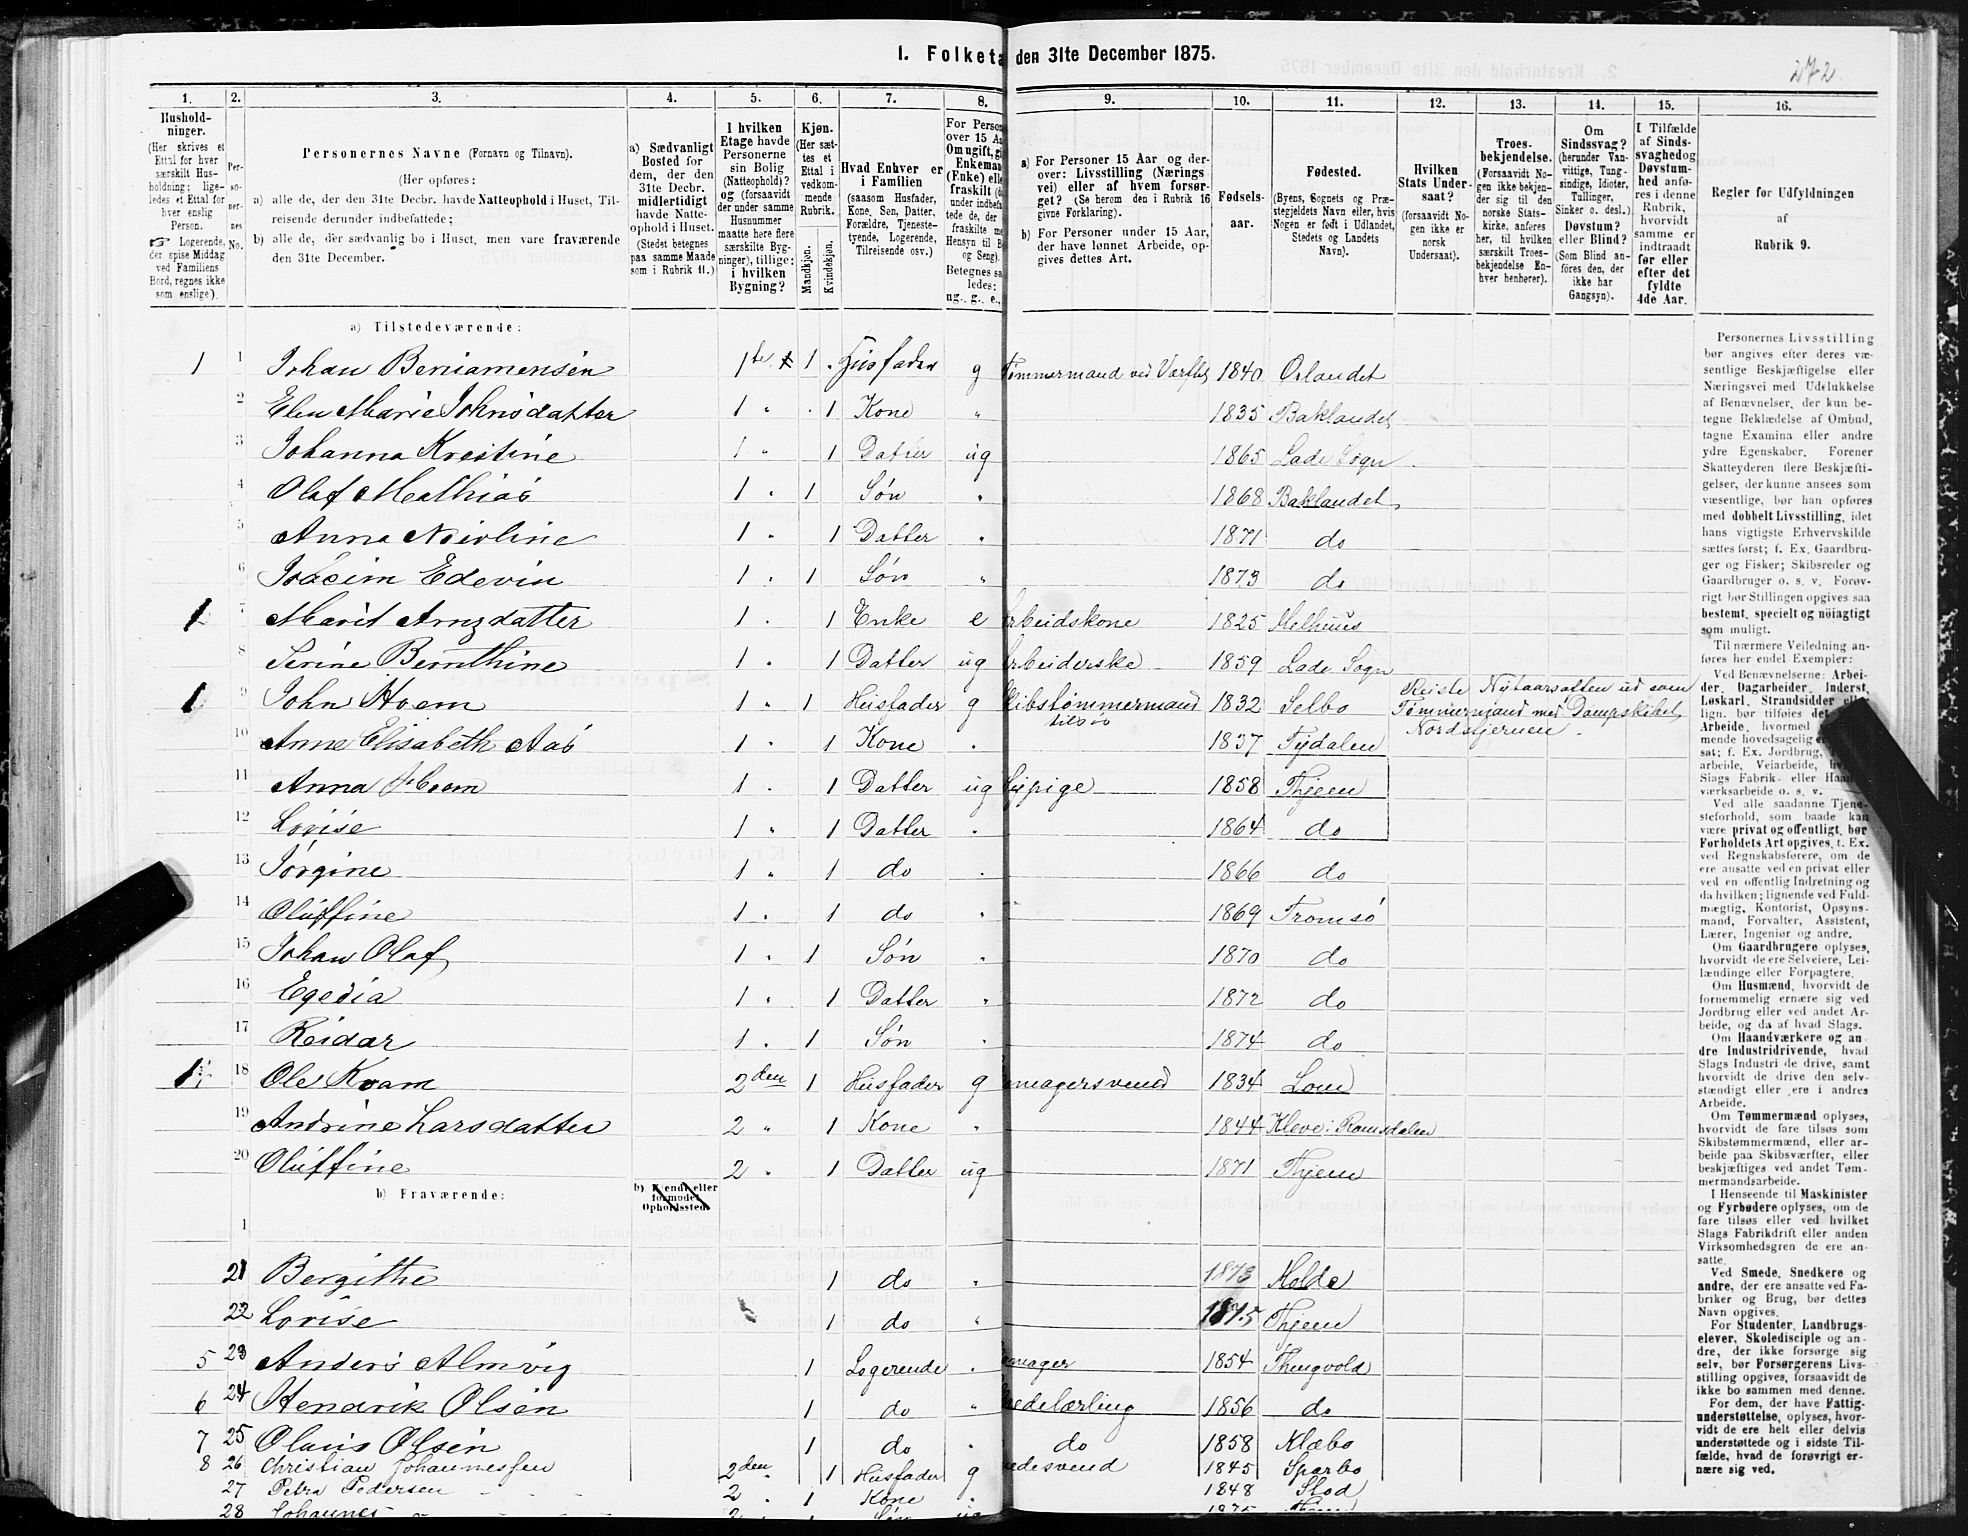 I. Folketæ den 31te December 1875.
272
1. 2. 3. 4. 5. 6. 7. 8. 9. 10. 11. 12. 13. 14. 15. 16.
Hushold-
ninger.
(Her skrives et
Ettal for hver
særskilt Hus-
holdning; lige-
ledes et Ettal for
hver enslig
Person.
☞ Logerende,
der spise Middag
ved Familiens
Bord, regnes ikke
som enslige).
Per-
so-
ner-
nes
No.
Personernes Navne (Fornavn og Tilnavn).
(Her opføres:
a) alle de, der den 31te Decbr. havde Natteophold i Huset, Til-
reisende derunder indbefattede;
b) alle de, der sædvanlig bo i Huset, men vare fraværende
den 31te December.
a) Sædvanligt
Bosted for
dem, der den
31te Decbr.
midlertidigt
havde Natte-
ophold i Huset.
(Stedet betegnes
paa samme Maade
som i Rubrik 11.)
I hvilken
Etage havde
Personerne
sin Bolig
(Natteophold)?
og (forsaavidt
der under samme
Husnummer
maatte høre flere
særskilte Byg-
ninger), tillige:
i hvilken
Bygning?
Kjøn.
(Her sæt-
tes et
Ettal i
vedkom-
mende
Rubrik.
Mandkjøn.
Kvindekjøn.
Hvad Enhver er
i Familien
(saasom Husfader,
Kone, Søn, Datter,
Forældre, Tjeneste-
tyende, Logerende,
Tilreisende osv.)
For Person
over 15 Aa
Om ugift, gi
Enkeman
(Enke) elle
fraskilt (
under indbefat
tede de, der
fraskilte m
Hensyn til B
og Seng).
Betegnes sa
ledes:
ug., g., e.,
a) For Personer 15 Aar og der-
over: Livsstilling (Nærings
vei) eller af hvem forsør-
get? (Se herom den i Rubrik 16
givne Forklaring).
b) For Personer under 15 Aar,
der have lønnet Arbeide, op-
gives dettes Art.
Fødsels-
aar.
Fødested.
(Byens, Sognets og Præ-
stegjeldets Navn eller, hvis
Nogen er født i Udlandet,
Stedets og Landets
Navn).
Hvilken
Stats Under-
saat?
(forsaavidt No-
gen ikke er
norsk
Undersaat).
Troes-
bekjendelse.
(Forsaavidt No-
gen ikke bekjen-
der sig til den
norske Stats-
kirke, anføres
her, til hvilken
særskilt Troes-
bekjendelse En-
hver henhører).
Om
Sindssvag?
(herunder Van-
vittige, Tung-
sindige, Idioter,
Tullinger,
Sinker o. desl.)
Døvstum?
eller Blind?
(Som Blind an-
føres den, der
ikke har
Gangsyn).
I Tilfælde
af Sinds-
svaghed og
Døvstum-
hed anfø-
res i denne
Rubrik,
hvorvidt
samme er
indtraadt
før eller
efter det
fyldte
4de Aar.
Regler for Udfyldningen
af
Rubrik 9.
a) Tilstedeværende:
1 1 Johan Beniamensen 1te 1 Husfader g Tømmermand ved Værftet 1840 Ørlandet
2 Elen Marie Johnsdatter 1 " 1 Kone " 1835 Baklandet
3 Johanna Krestine 1 " 1 Datter ug 1865 Lade Sogn
4 Olaf Mathias 1 " 1 Søn " 1868 Baklandet
5 Anna 1 " 1 Datter " 1871 do
6 Joacim Edevin 1 " 1 Søn " 1873 do
1 7 Marit Arnzdatter 1 " 1 Enke e rbeidskone 1825 Melhuus
8 Serine Bernthine 1 " 1 Datter ug rbeiderske 1859 Lade Sogn
1 9 John Hoem 1 " 1 Husfader g kibstømmermand tilsøs 1832 Selbo Reiste Nytaarsatten ud som Tømmermand med Dampskibet Nordstjernen.
10 Anne Elisabeth Aas 1 " 1 Kone " 1837 Tydalen
11 Anna Hoem 1 " 1 Datter ug ypige 1858 Thjem
12 Lovise 1 " 1 Datter " 1864 do
13 Jørgine 1 " 1 do " 1866 do
14 Oluffine 1 " 1 do " 1869 Tromsø
15 Johan Olaf 1 " 1 Søn " 1870 do
16 Egedia 1 " 1 Datter " 1872 do
17 Reidar 1 " 1 Søn " 1874 do
1 18 Ole Kvam 2den 1 Husfader g magersvend 1834 Lom
19 Andrine Larsdatter 2 " 1 Kone " 1844 Kleve i Romsdalen
20 Oluffine 2 " 1 Datter ug 1871 Thjem
b) Fraværende:
b) Kjendt eller
formodet
Opholdssted.
1
21 Bergithe 1 do " 1873 Molde
22 Lovise 1 do " 1875 Thjem
5 23 Anders Almvig 1 Logerende " mager 1854 Thingvold
6 24 Hendrik Olsen 1 do " edelærling 1856 do
7 25 Olaus Olsen 1 do " do 1858 Klæbo
8 26 Christian Johannessen 2den 1 Husfader g edesvend 1845 Sparbo
27 Petra Pedersen 2 " 1 Kone " 1848 Stod
28 Johannes 2 " 1 Søn ug 1875 Thjem
Personernes Livsstilling
bør angives efter deres væ-
sentlige Beskjæftigelse eller
Næringsvei med Udelukkelse
af Benævnelser, der kun be-
tegne Beklædelse af Ombud,
tagne Examina eller andre
ydre Egenskaber. Forener
Skatteyderen flere Beskjæfti-
gelser, der kunne ansees som
væsentlige, bør han opføres
med dobbelt Livsstilling, idet
hans vigtigste Erhvervskilde
sættes først; f. Ex. Gaardbru-
ger og Fisker; Skibsreder og
Gaardbruger o. s. v. Forøv-
rigt bør Stillingen opgives saa
bestemt, specielt og nöiagtigt
som muligt.
Til nærmere Veiledning an-
føres her endel Exempler:
Ved Benævnelserne: Arbei-
der, Dagarbeider, Inderst,
Løskarl, Strandsidder el
lign. bør tilføies det
Arbeide, hvormed
mende hovedsagelig
sat; f. Ex. Jordbrug,
arbeide, Veiarbeide,
Slags Fabrik- eller Haan
værksarbeide o. s. v.
Ved alle saadanne Tjene-
steforhold, som baade kan
være privat og offentligt, bør
Forholdets Art opgives, f. Ex.
ved Regnskabsførere, om de
ere ansatte ved en privat eller
ved en offentlig Indretning og
da hvilken; lignende ved Fuld-
mægtig, Kontorist, Opsyns-
mand, Forvalter, Assistent,
Lærer, Ingeniør og andre.
Om Gaardbrugere oplyses,
hvorvidt de ere Selveiere, Lei-
lændinge eller Forpagtere.
Om Husmænd, hvorvidt de
fornemmelig ernære sig ved
Jordbrug eller ved andet Ar-
beide, og da af hvad Slags.
Om Haandværkere og an-
dre Industridrivende, hvad
Slags Industri de drive, samt
hvorvidt de drive den selv-
stændigt eller ere i andres
Arbeide.
Om Tømmermænd oplyses,
hvorvidt de fare tilsøs som
Skibstømmermænd, eller ar-
beide paa Skibsværfter, eller
beskjæftiges ved andet Tøm-
mermandsarbeide.
I Henseende til Maskinister
og Fyrbødere oplyses, om de
fare tilsøs eller ved hvilket
Slags Fabrikdrift eller anden
Virksomhedsgren de ere an-
satte.
Ved Smede, Snedkere og
andre, der ere ansatte ved Fa-
briker og Brug, bør dettes
Navn opgives.
For Studenter, Landbrugs-
elever, Skoledisciple og an-
dre, der ikke forsørge sig
selv, bør Forsørgerens Livs-
stilling opgives, forsaavidt de
ikke bo sammen med denne.
For dem, der have Fattig-
understøttelse, oplyses, hvor-
vidt de ere helt eller delvis
understøttede og i sidste Til-
fælde, hvad de forøvrigt er-
nære sig ved.